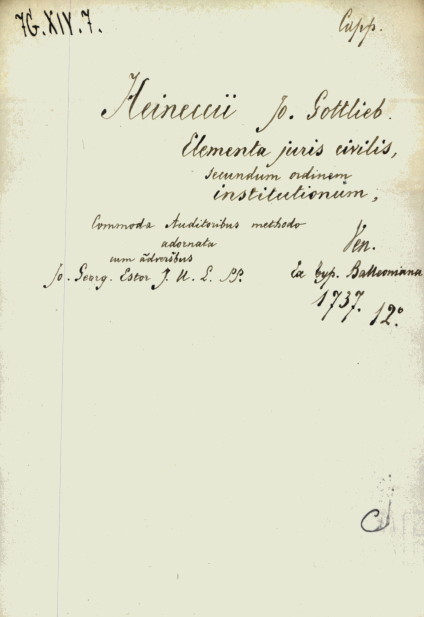 7G.XIV.7.
Cupp.
Heineccii Jo. Gottlieb.
Elementa juris civilis,
secundum ordinem
institutionum,
Commoda Auditoribus methodo
adornata
cum
Jo. Georg. Estor J. U. L. PP.
Ven.
Ex typ. Balleoniana
1737.
12°.